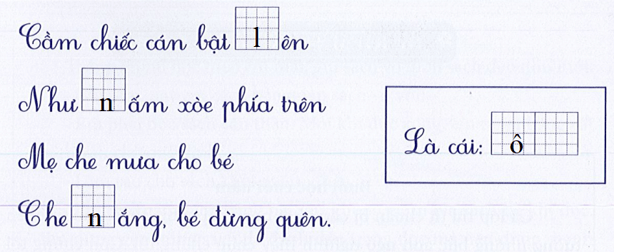 Cầm chiếc cán bật lên
Như nấm xòe phía trên
Mẹ che mưa cho bé
Che nắng, bé đừng quên.
Là cái: ô